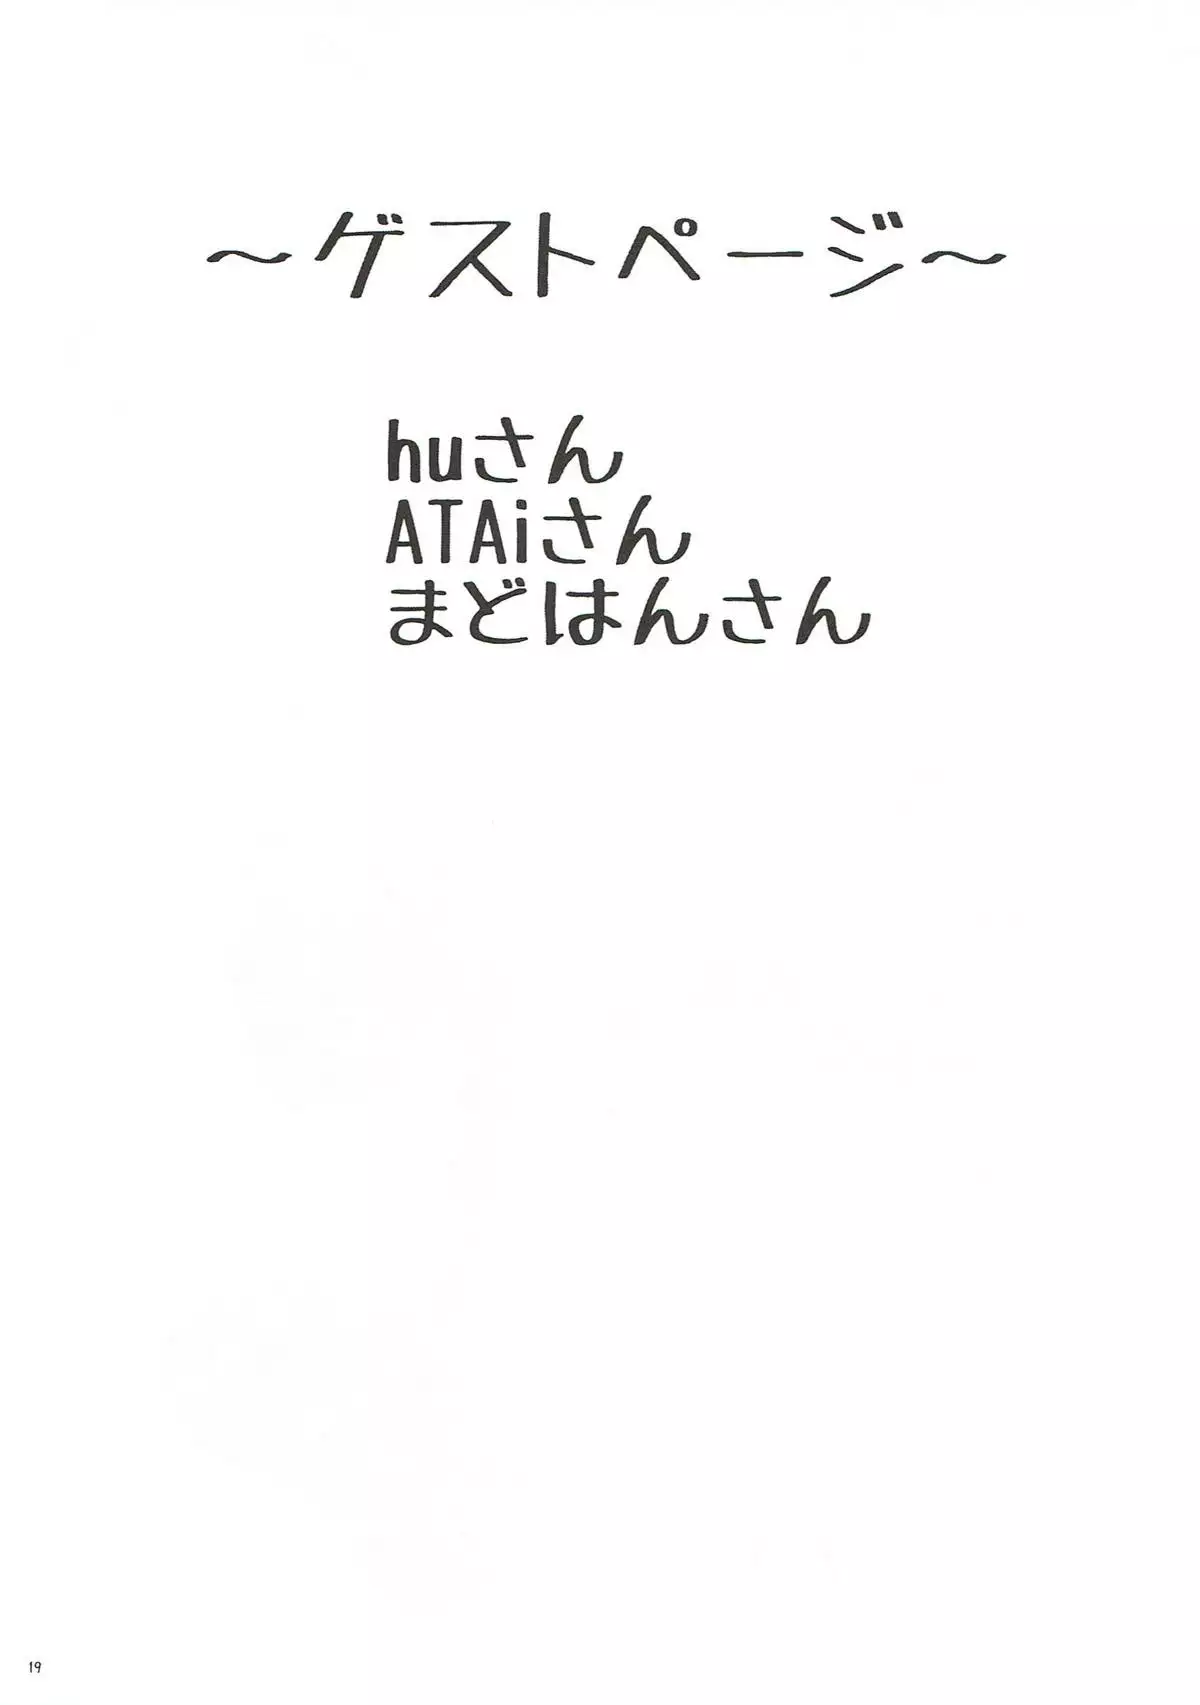 ～ゲストページ～
huさん
ATAiさん
まどはんさん
19